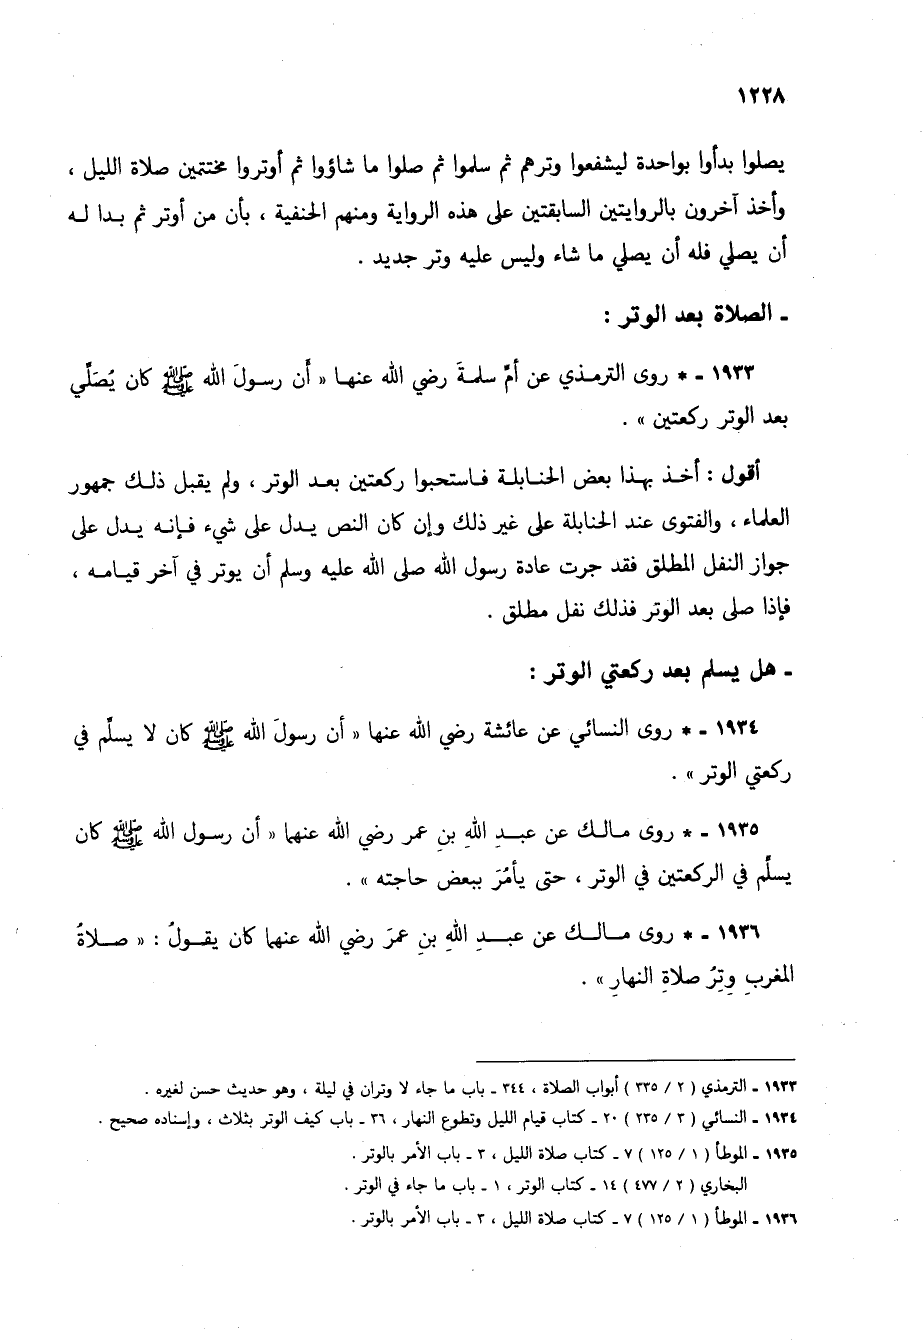 ١٢٢٨
يصلوا بدأوا بواحدة ليشفعوا وترهم ثم سلموا ثم صلوا ما شاؤوا ثم أوتروا مختتمين صلاة الليل ،
وأخذ آخرون بالروايتين السابقتين على هذه الرواية ومنهم الحنفية ، بأن من أوتر ثم بدا له
أن يصلي فله أن يصلي ما شاء وليس عليه وتر جديد .
ـ الصلاة بعد الوتر :
١٩٣٣ ـ * روى الترمذي عن أمِّ سلمةَ رضي الله عنها « أن رسولَ الله ﷺ كان يُصَلِّي
بعد الوتر ركعتين » .
أقول : أخذ بهذا بعض الحنابلة فاستحبوا ركعتين بعد الوتر ، ولم يقبل ذلك جمهور
العلماء ، والفتوى عند الحنابلة على غير ذلك وإن كان النص يدل على شيء فإنه يدل على
جواز النفل المطلق فقد جرت عادة رسول الله صلى الله عليه وسلم أن يوتر في آخر قيامه ،
فإذا صلى بعد الوتر فذلك نفل مطلق .
ـ هل يسلم بعد ركعتي الوتر :
١٩٣٤ ـ * روى النسائي عن عائشة رضي الله عنها « أن رسولَ الله ﷺ كان لا يسلِّم في
ركعتي الوتر » .
١٩٣٥ ـ * روى مالك عن عبدِ اللهِ بنِ عمر رضي الله عنهما « أن رسول الله ﷺ كان
يسلِّم في الركعتين في الوتر ، حتى يأمُرَ ببعض حاجته » .
١٩٣٦ ـ * روى مالك عن عبدِ اللهِ بنِ عمرَ رضي الله عنهما كان يقولُ : « صلاةُ
المغربِ وِترُ صلاةِ النهارِ » .
١٩٣٣ ـ الترمذي ( ٢ / ٣٣٥ ) أبواب الصلاة ، ٣٤٤ ـ باب ما جاء لا وتران في ليلة ، وهو حديث حسن لغيره .
١٩٣٤ ـ النسائي ( ٣ / ٢٣٥ ) ٢٠ ـ كتاب قيام الليل وتطوع النهار ، ٣٦ ـ باب كيف الوتر بثلاث ، وإسناده صحيح .
١٩٣٥ ـ الموطأ ( ١ / ١٢٥ ) ٧ ـ كتاب صلاة الليل ، ٣ ـ باب الأمر بالوتر .
البخاري ( ٢ / ٤٧٧ ) ١٤ ـ كتاب الوتر ، ١ ـ باب ما جاء في الوتر .
١٩٣٦ ـ الموطأ ( ١ / ١٢٥ ) ٧ ـ كتاب صلاة الليل ، ٣ ـ باب الأمر بالوتر .